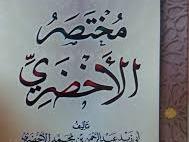 مُخْتَصَرُ
الأَخْضَرِيِّ
تأليف
أبي زيد عبد الرحمن بن محمد الأخضري